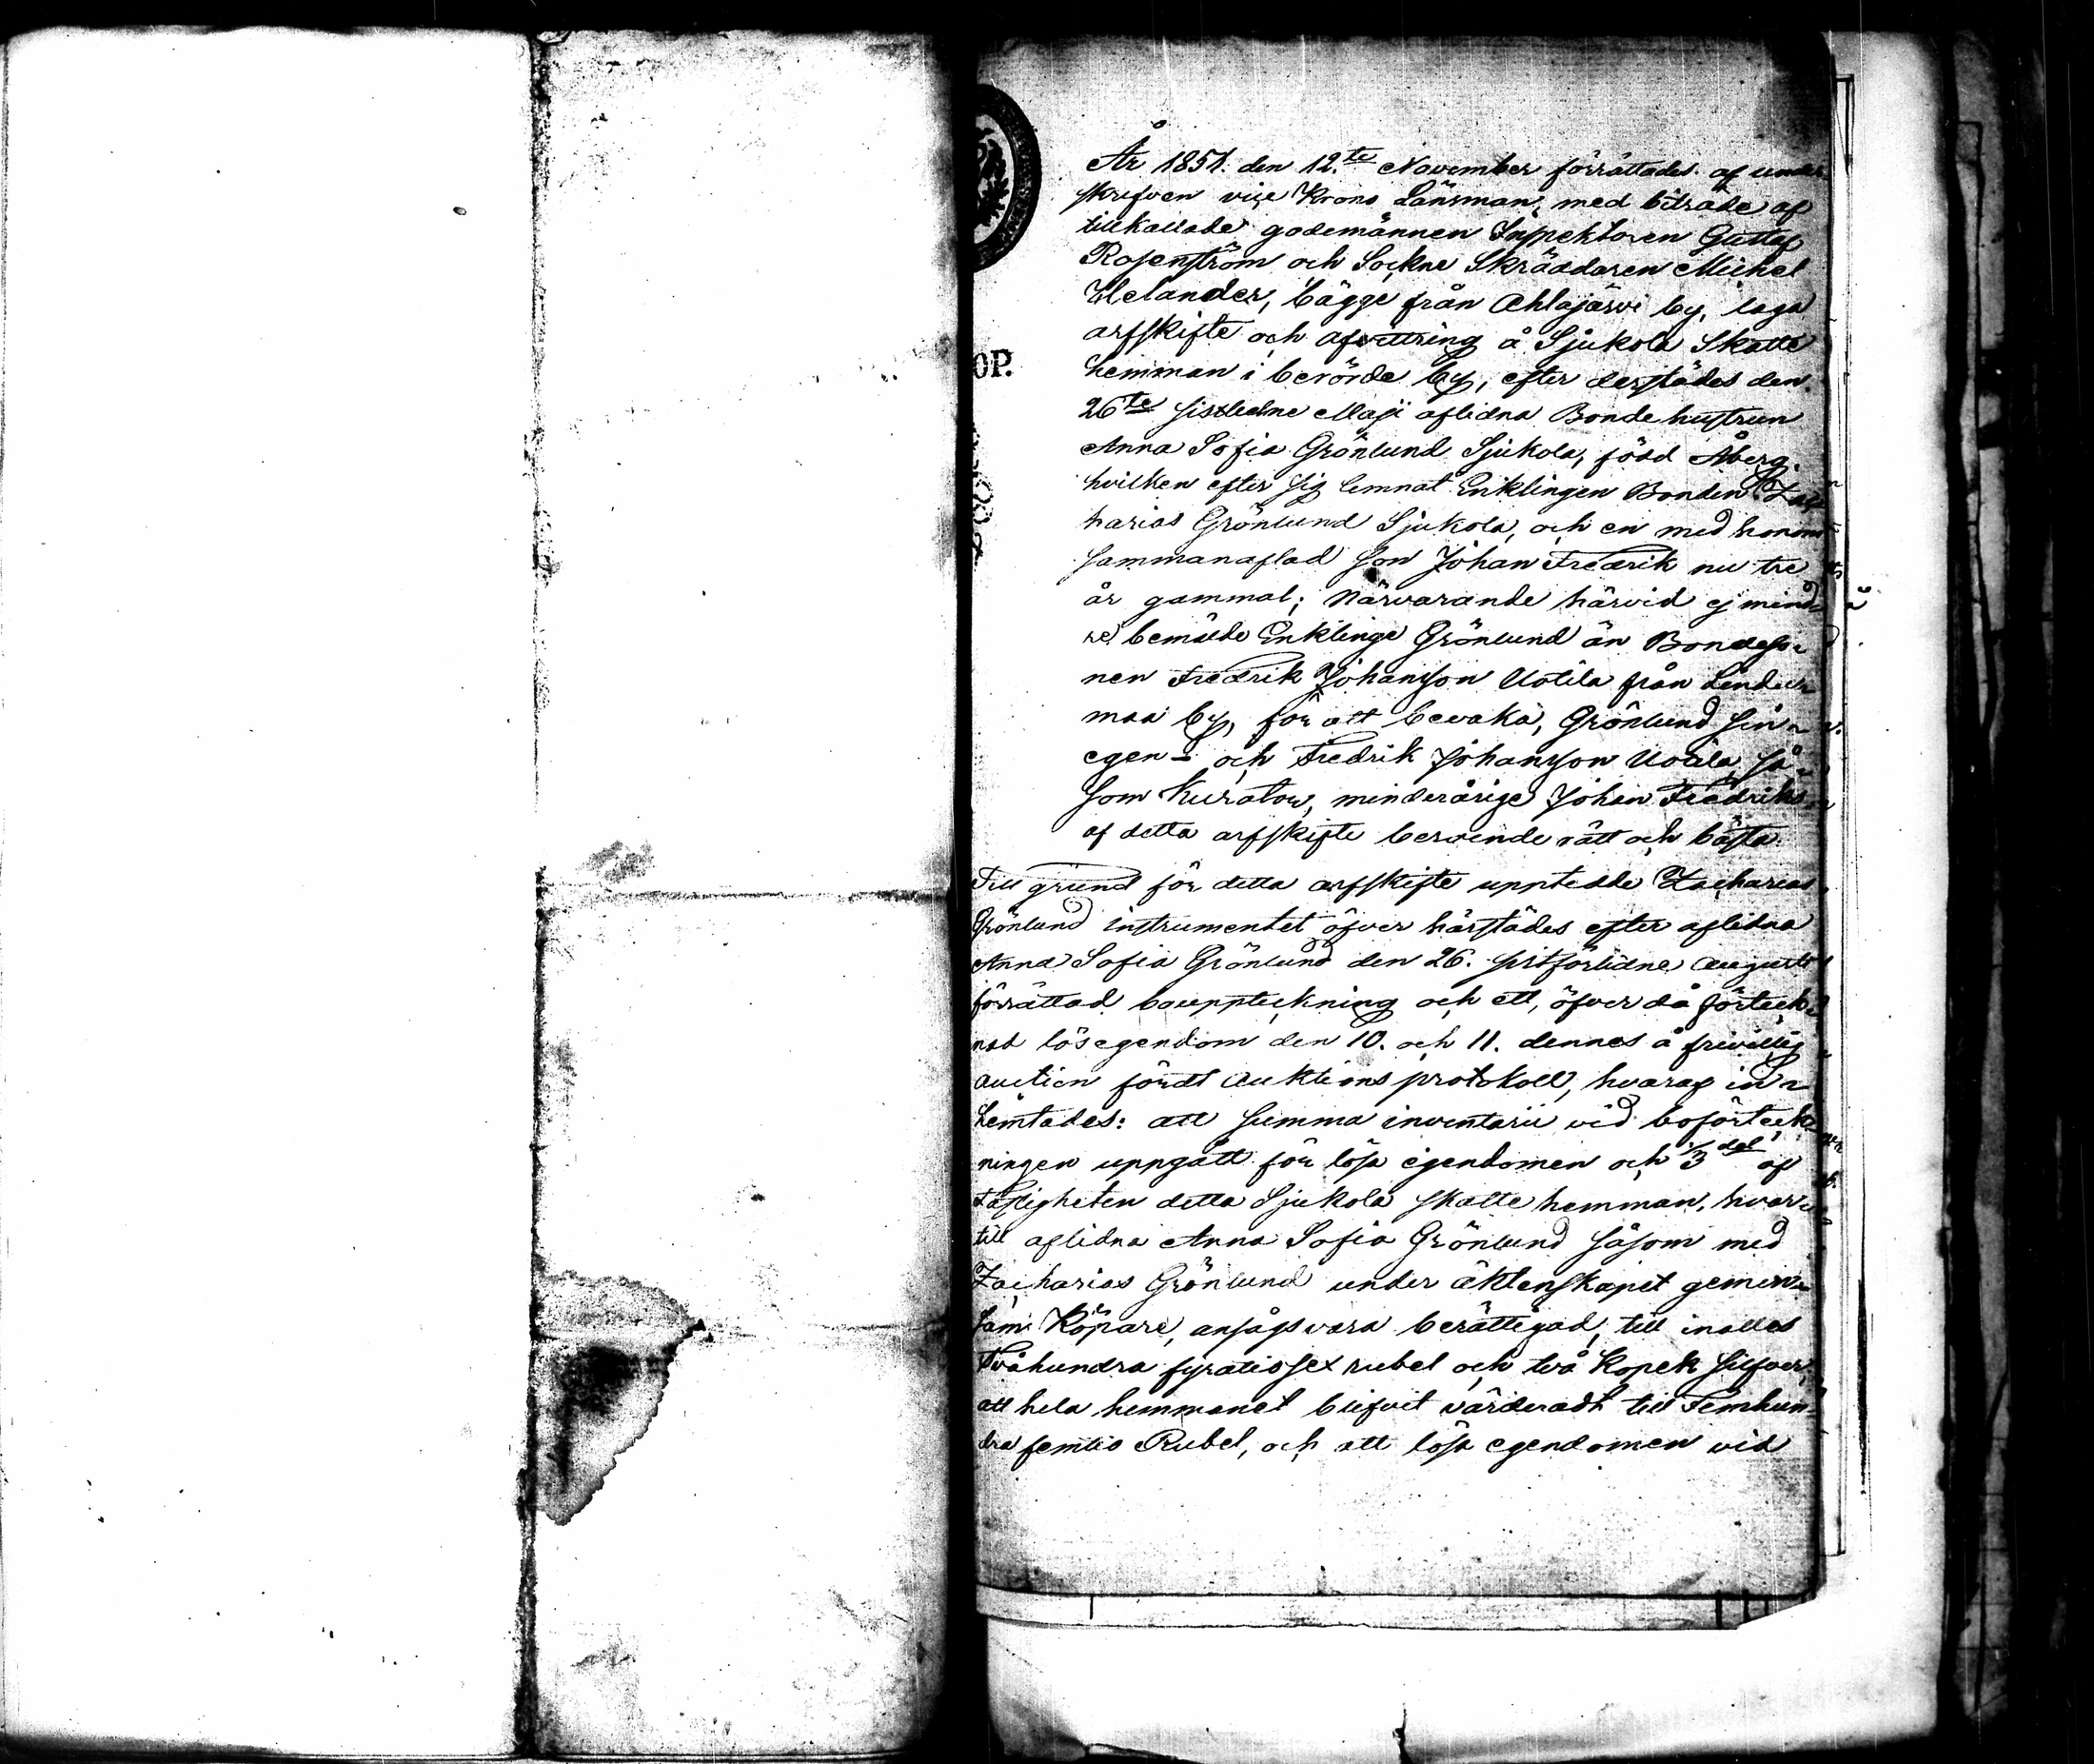 År 1851. den 12.te November förrättades af under-
skrifven vice Krono Länsman, med biträde af
tillkallade godemännen Inspektoren Gustaf
Rosenström och Sockne Skräddaren Michel
Helander, bägge från Ahlajärvi by, laga
arfskifte och afvittring å Sjukola Skatte
OP.
hemman i berörde by, efter derstädes den
26te sistledne Maji aflidna Bonde hustrun
Anna Sofia Grönlund Sjukola, född Åberg,
hvilken efter sig lemnat Enklingen Bonden Zac
harias Grönlund Sjukola, och en med honom
sammanaflad son Johan Fredrik nu tre
år gammal; Närvarande härvid ej mind-
re bemälde Enklinge Grönlund än Bondeso-
nen Fredrik Johansson Uotila från
maa by, för att bevaka, Grönlund sin
egen - och Fredrik Johansson Uotila, så-
som Kurator, minderårige Johan Fredriks
af detta arfskifte beroende rätt och bästa.
Till grund för detta arfskifte uppteddde Zacharias
Grönlund instrumentet öfver härstädes efter aflidna
Anna Sofia Grönlund den 26. sistförlidne Augusti
förrättad bouppteckning och ett, öfver då förteck-
nad lösegendom den 10. och 11. dennes å frivillig
auction fördt Auktions protokoll, hvaraf in-
hemtades: att summa inventarii vid boförteck-
ningen uppgått för lösa egendomen och 1/3 del af
fastigheten detta Sjukola skatte hemman, hvar-
till aflidna Anna Sofia Grönlund såsom med
Zacharias Grönlund under äktenskapet gemen-
sam Köpare, ansågs vara berättigad, till inalles
Tvåhundra fyratiosex rubel och två Kopek silfver,
att hela hemmanet blifvit värderadt till Femhun-
dra femtio Rubel, och att lösa egendomen vid